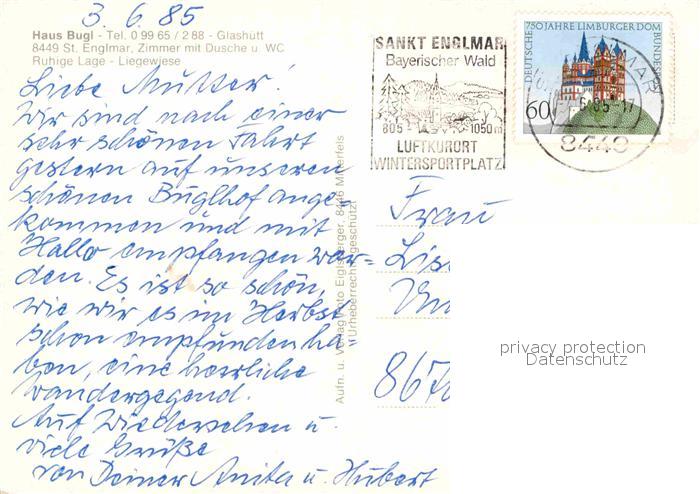 3. 6. 85
Haus Bugl - Tel. 0 99 65 / 2 88 - Glashütt
8449 St. Englmar, Zimmer mit Dusche u. WC
Ruhige Lage - Liegewiese
Liebe Mutter!
Wir sind nach einer
sehr schönen Fahrt
gestern auf unseren
schönen Buglhof ange-
kommen und mit
Hallo empfangen wor-
den. Es ist so schön,
wie wir es im Herbst
schon empfunden ha
ben, eine herrliche
Wandergegend.
Auf Wiedersehen u.
viele Grüße
von Deiner Anita u. Hubert
Aufn. u. Verlag Foto Eiglsperger, 8446 Mitterfels
"Urheberrechtl. geschützt"
SANKT ENGLMAR
Bayerischer Wald
805 - 1050m
LUFTKURORT
WINTERSPORTPLATZ
DEUTSCHE BUNDESP
750 JAHRE LIMBURGER DOM
60
85-17
8449
Frau
867
privacy protection
Datenschutz